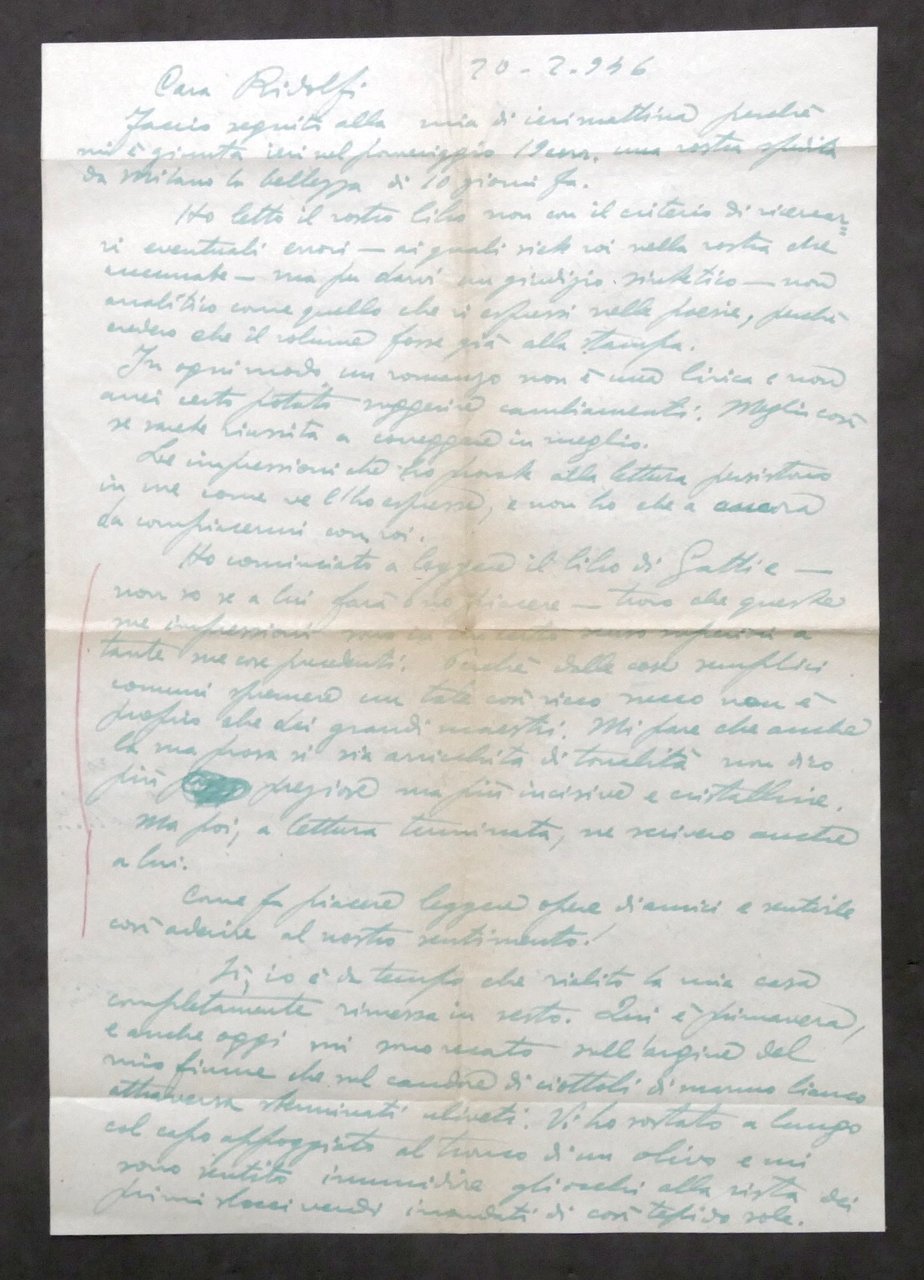 20-2-946
Cara Ridolfi
Faccio seguito alla mia di ieri mattina perché
mi è giunta ieri nel pomeriggio 19 corr. una vostra spedita
da Milano la bellezza di 10 giorni fa.
Ho letto il vostro libro non con il criterio di ricercar=
vi eventuali errori — ai quali siete voi nella vostra che
accennate — ma per darvi un giudizio sintetico — non
analitico come quello che vi espressi nelle poesie, perché
credevo che il volume fosse già alla stampa.
In ogni modo un romanzo non è una lirica e non
avrei certo potuto suggerire cambiamenti. Meglio così
se sarete riuscita a correggere in meglio.
Le impressioni che ho provate alla lettura persistono
in me come ve l'ho espresse, e non ho che a ancora
da compiacermi con voi.
Ho cominciato a leggere il libro di Gatti e —
non so se a lui farà o no piacere — trovo che queste
sue impressioni sono in un certo senso superiori a
tante sue cose precedenti. Perché dalle cose semplici
comuni spremere un tale così ricco succo non è
proprio che dei grandi maestri. Mi pare che anche
la sua prosa si sia arricchita di tonalità non dico
più preziose ma più incisive e cristalline.
Ma poi, a lettura terminata, ne scriverò anche
a lui.
Come fa piacere leggere opere di amici e sentirle
così aderire al nostro sentimento!
Sì, io è da tempo che riabito la mia casa
completamente rimessa in sesto. Qui è primavera,
e anche oggi mi sono recato sull'argine del
mio fiume che sul candore di ciottoli di marmo bianco
attraversa sterminati uliveti. Vi ho sostato a lungo
col capo appoggiato al tronco di un olivo e mi
sono sentito inumidire gli occhi alla vista dei
primi stocci verdi inondati di così tepido sole.